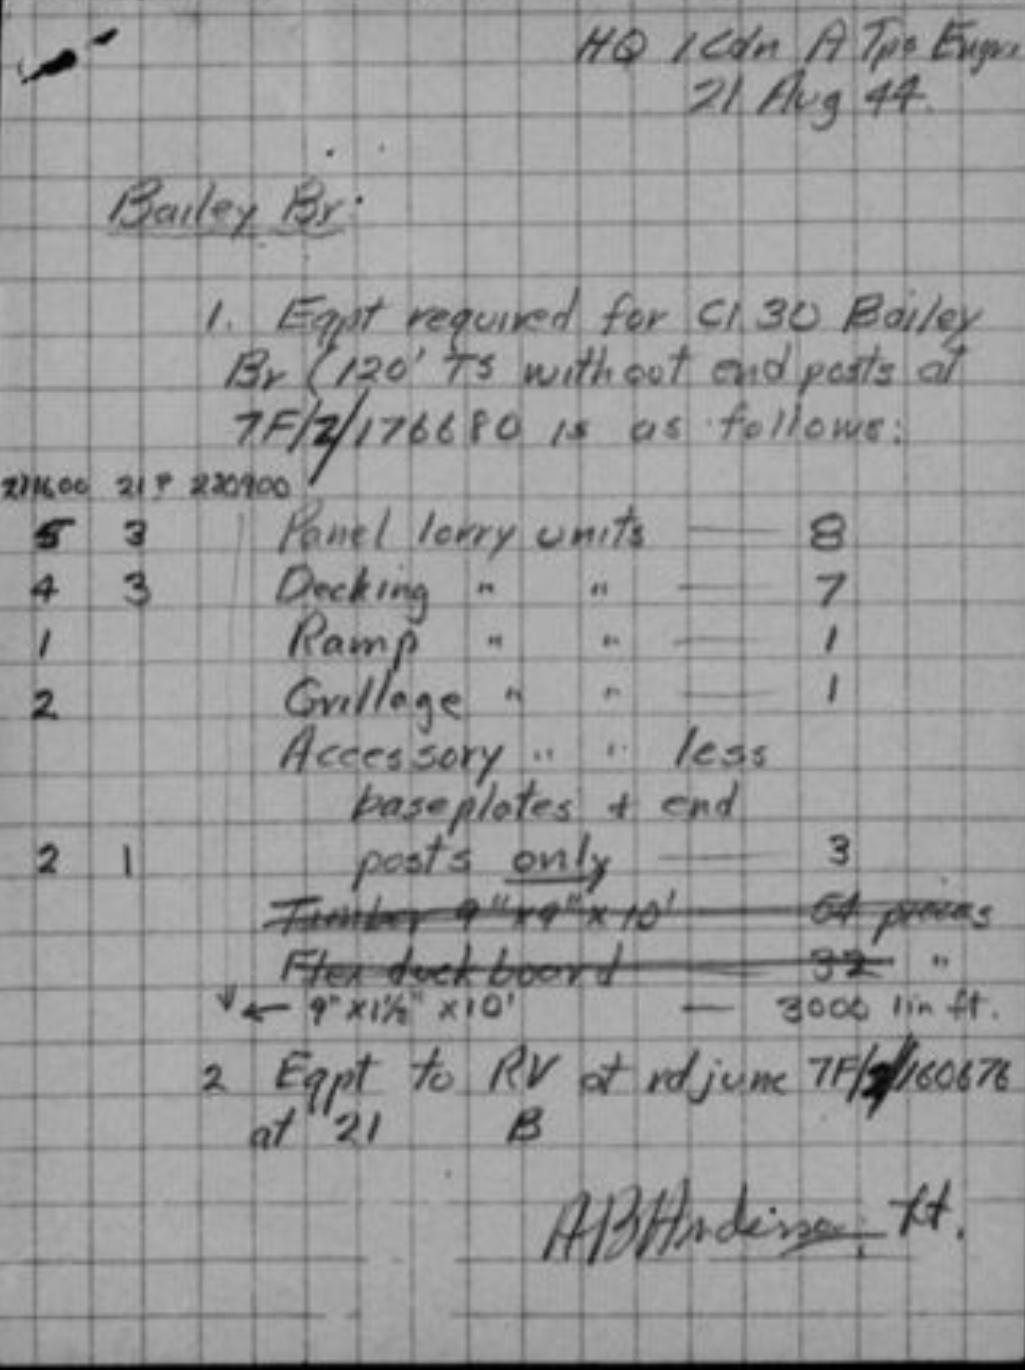 HQ 1 Cdn A Tps Engrs
21 Aug 44.
Bailey Br:
1. Eqpt required for Cl 30 Bailey
Br (120' TS without end posts at
7F/2/176680 is as follows:
211600 21 220900
5 3 Panel lorry units — 8
4 3 Decking " " — 7
1 Ramp " " — 1
2 Grillage " " — 1
Accessory " " less
baseplates + end
2 1 posts only — 3
Timber 9"x9"x10' 64 pieces
Flex duck board 32 "
← 9"x1½"x10' — 3000 lin ft.
2 Eqpt to RV at rd junc 7F/2/160676
at 21 B
AB Anderson Lt.